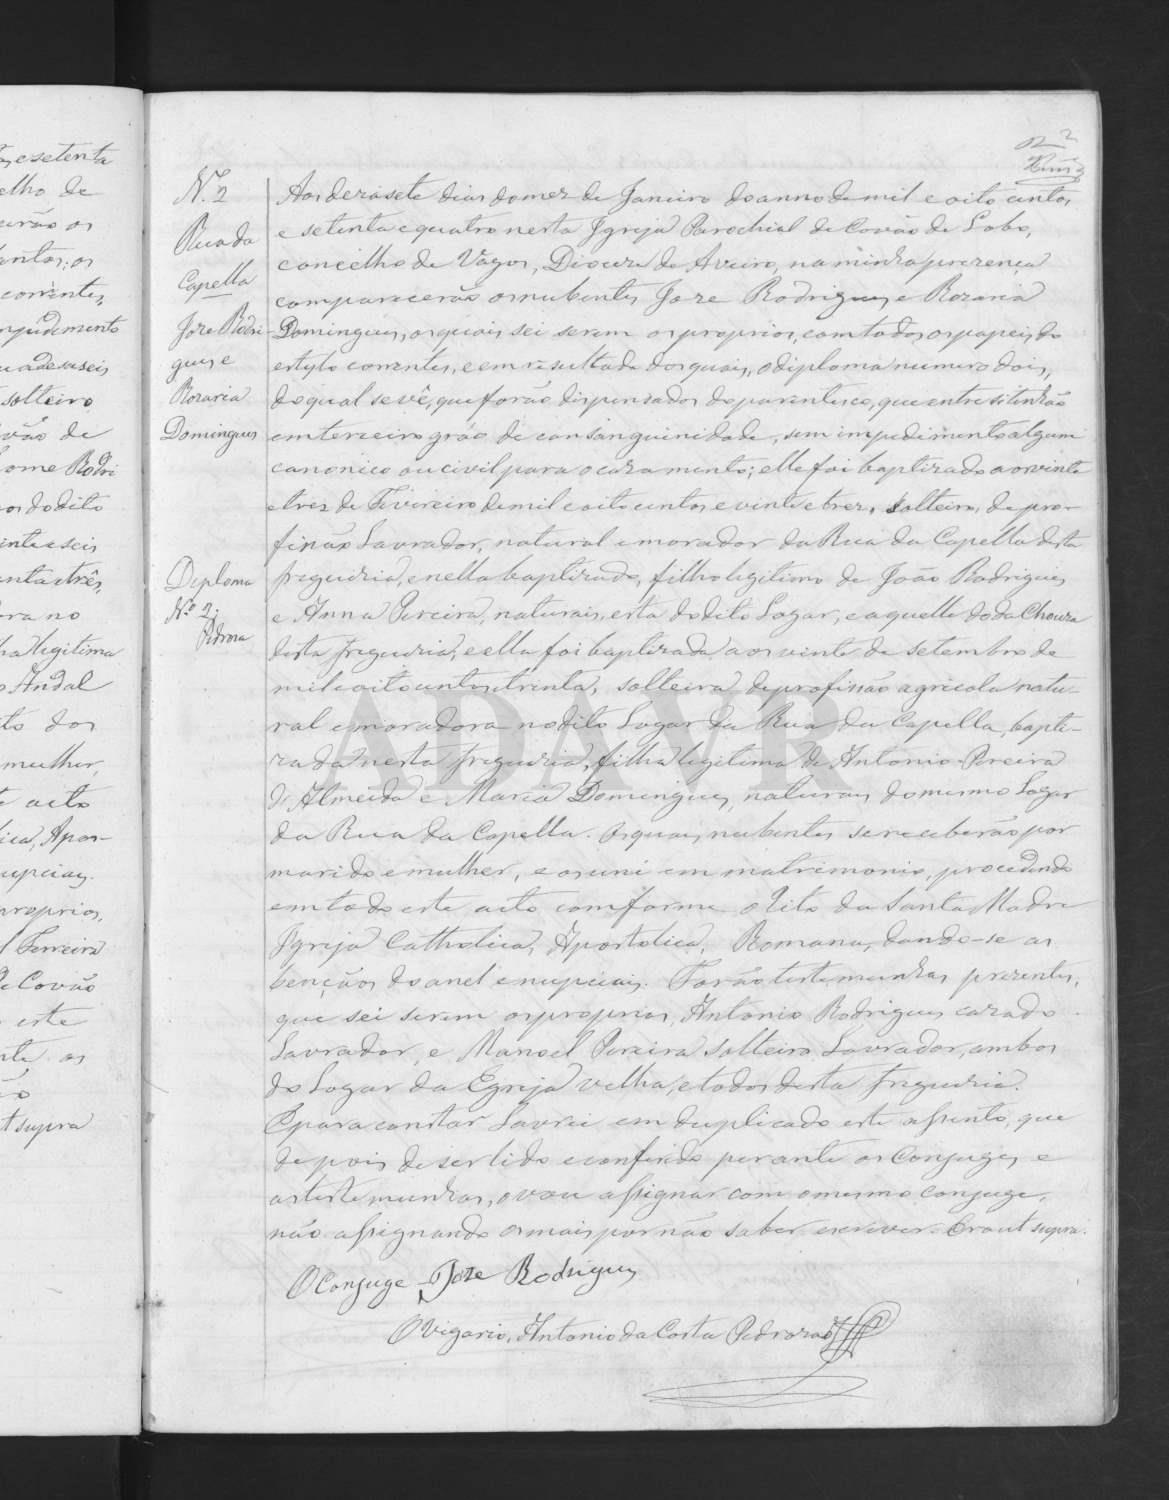 esetenta
elho de
os
antos; os
correntes,
mpedimento
adeseseis
solteiro
vão de
ome Rodri
os do dito
inte e seis
enta e três,
ora no
ha legitima
o Andal
to dos
mulher,
e acto
lica, Apos-
nupciaes.
proprios,
l Ferreira
de Covão
este
os
ut supra
2
N.º 2
Rua da
Capella
Joze Rodri-
gues e
Rozaria
Domingues
Diploma
N.º 2.
Pedroza
Aos dezasete dias do mez de Janeiro do anno de mil e oito centos
e setenta e quatro nesta Igreja Parochial de Covão do Lobo,
concelho de Vagos, Diocese de Aveiro, na minha prezença
comparecerão os nubentes Joze Rodrigues e Rozaria
Domingues, os quais sei serem os proprios, com todos os papeis do
estylo correntes, e em resultado dos quais, o diploma numero dois,
do qual se vê, que forão dispensados do parentesco, que entre si tinhão
em terceiro gráo de consanguinidade, sem impedimento algum
canonico ou civil para o cazamento; elle foi baptizado aos vinte
e tres de Fevereiro de mil e oito centos e vinte e trez, solteiro, de pro-
fissão Lavrador, natural e morador da Rua da Capella desta
freguezia, e nella baptizado, filho legitimo de João Rodrigues
e Anna Pereira, naturais, esta do dito Logar, e aquelle do da Chouza
desta freguezia; e ella foi baptizada aos vinte de setembro de
mil e oito centos e trinta, solteira de profissão agricola natu-
ral e moradora no dito Lugar da Rua da Capella, bapti-
zada nesta freguezia, filha legitima de Antonio Pereira
d'Almeida e Maria Domingues, naturais do mesmo Logar
da Rua da Capella. Os quais nubentes se receberão por
marido e mulher, e os uni em matrimonio, procedendo
em todo este acto comforme o rito da Santa Madre
Igreja Catholica, Apostolica, Romana, dando-se as
bençãos do anel e nupciais. Forão testemunhas prezentes,
que sei serem os proprios, Antonio Rodrigues cazado
Lavrador, e Manoel Pereira solteiro Lavrador, ambos
do Logar da Egreja velha, e todos desta freguezia.
E para constar Lavrei em duplicado este assento, que
depois de ser lido e conferido perante os Conjuges e
as testemunhas, o vou assignar com o mesmo conjuge,
não assignando os mais por não saber escrever. Era ut supra.
O Conjuge Joze Rodrigues
O Vigario, Antonio da Costa Pedrozo
ADAVR